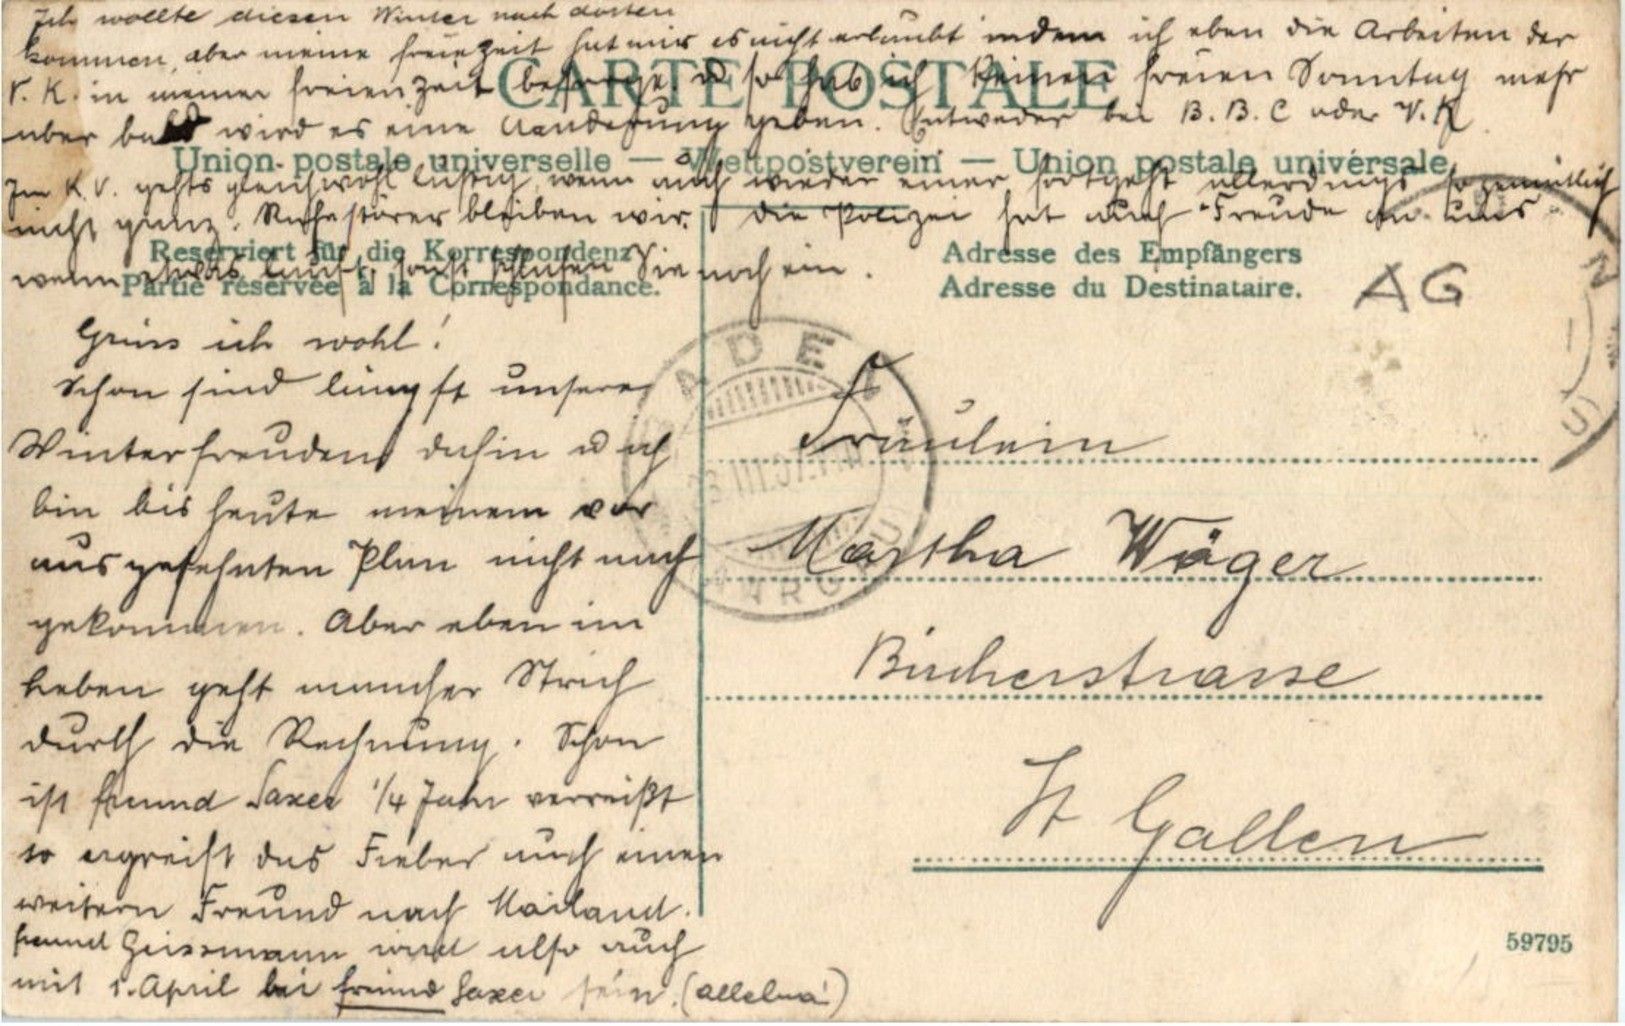 Ich wollte diesen Winter nach dorten
kommen, aber meine freie Zeit hat mir es nicht erlaubt indem ich eben die Arbeiten der
V. K. in meiner freien Zeit besorge u so hab ich keinen freien Sonntag mehr
aber bald wird es eine Aenderung geben. Entweder bei B. B. C oder V. K
Im K. V. gehts gleichwohl lustig, wenn auch wieder einer fortgeht allerdings so gemütlich
nicht ganz. Ruhestörer bleiben wir. Die Polizei hat auch Freude an uns
wenn etwas läuft, sonst schlafen Sie noch ein.
CARTE POSTALE
Union postale universelle — Weltpostverein — Union postale universale
Reserviert für die Korrespondenz
Partie réservée à la Correspondance.
Adresse des Empfängers
Adresse du Destinataire.
AG
Grüss ich wohl!
Schon sind längst unsere
Winterfreuden dahin u ich
bin bis heute meinem vor
aus gefehnten Plan nicht nach
gekommen. Aber eben im
Leben geht mancher Strich
durch die Rechnung. Schon
ist freund Saxer 1/4 Jahr verreißt
so ergreift das Fieber auch einen
weitern Freund nach Mailand.
freund Geissmann wird also auch
mit 1. April bei freund Saxer sein. (alleluia!)
BADEN
Fräulein
Martha Wäger
Bücherstrasse
St Gallen
59795